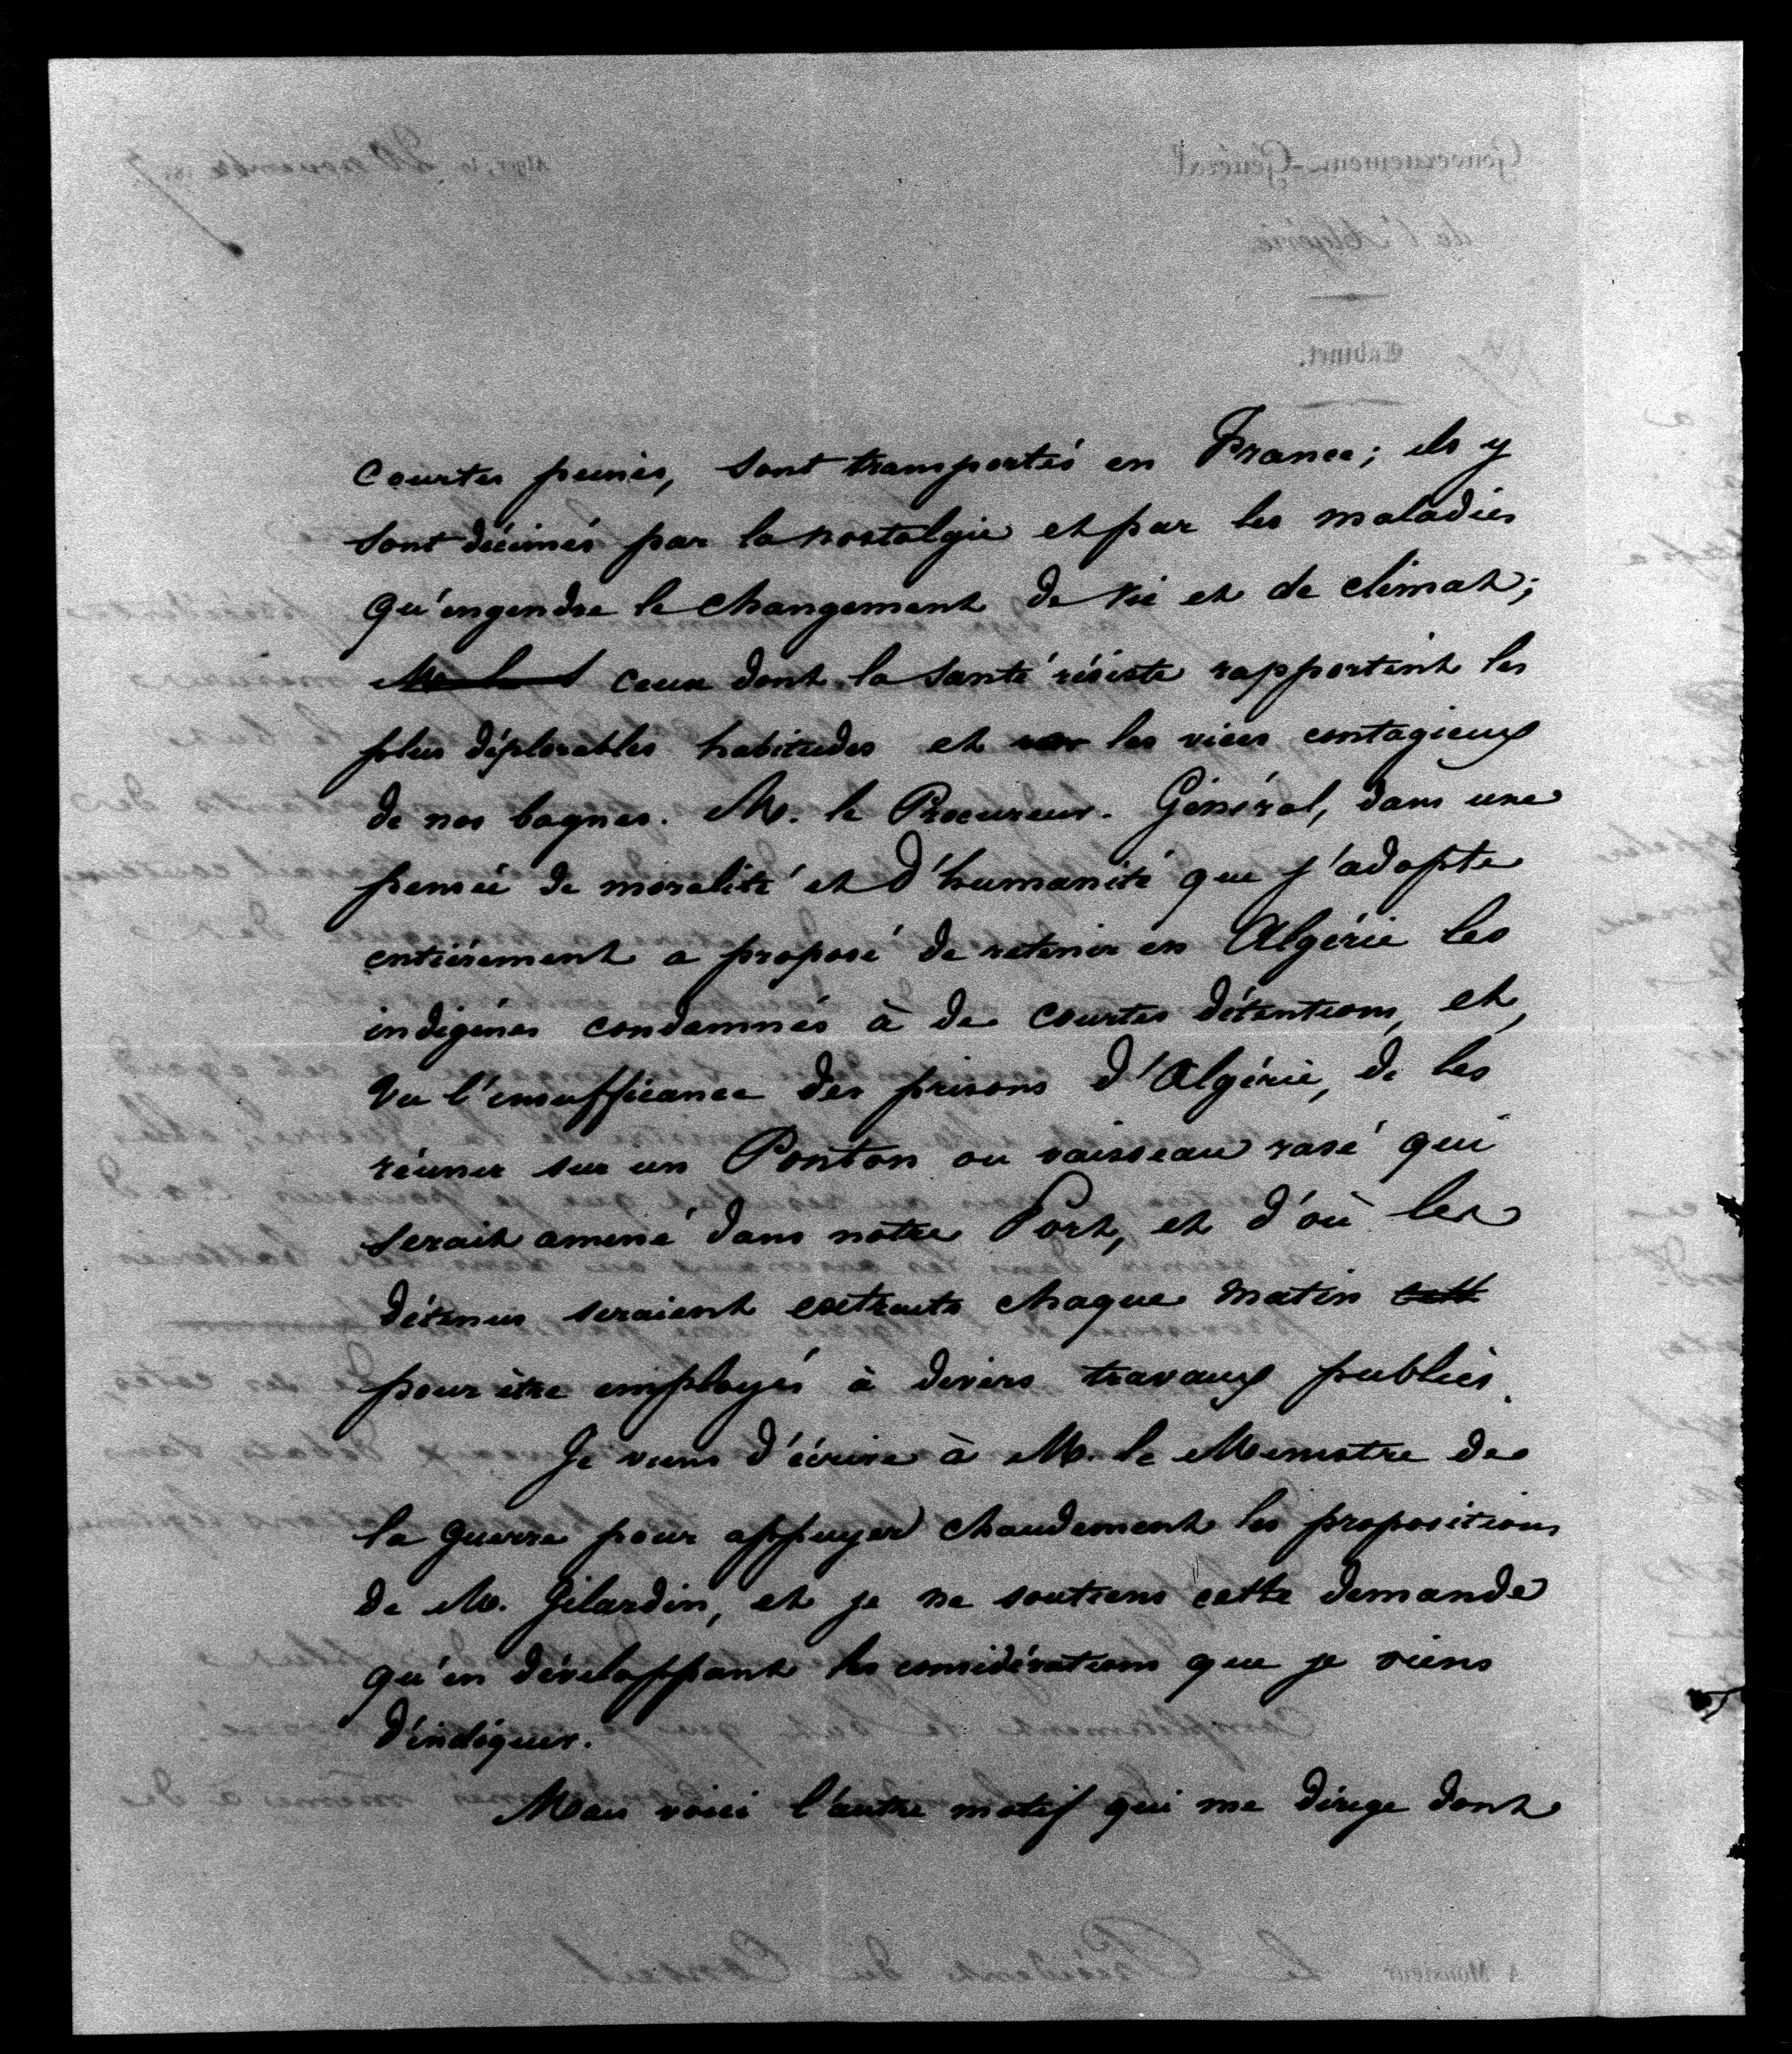 courtes peines, sont transportés en France; ils y
sont décimés par la nostalgie et par les maladies
qu'engendre le changement de vie et de climat;
ceux dont la santé résiste rapportent les
plus déplorables habitudes et les vices contagieux
de nos bagnes. M. le Procureur. Général, dans une
pensée de moralité et d'humanité que j'adopte
entièrement a proposé de retenir en Algérie les
indigènes condamnés à de courtes détentions, et,
vu l'insuffisance des prisons d'Algérie, de les
réunir sur un Ponton ou vaisseau rasé qui
serait amené dans notre Port, et d'où les
détenus seraient extraits chaque matin
pour être employés à divers travaux publics.
Je viens d'écrire à M. le Ministre de
la guerre pour appuyer chaudement les propositions
de M. Gilardin, et je ne soutiens cette demande
qu'en développant les considérations que je viens
d'indiquer.
Mais voici l'autre motif qui me dirige dont